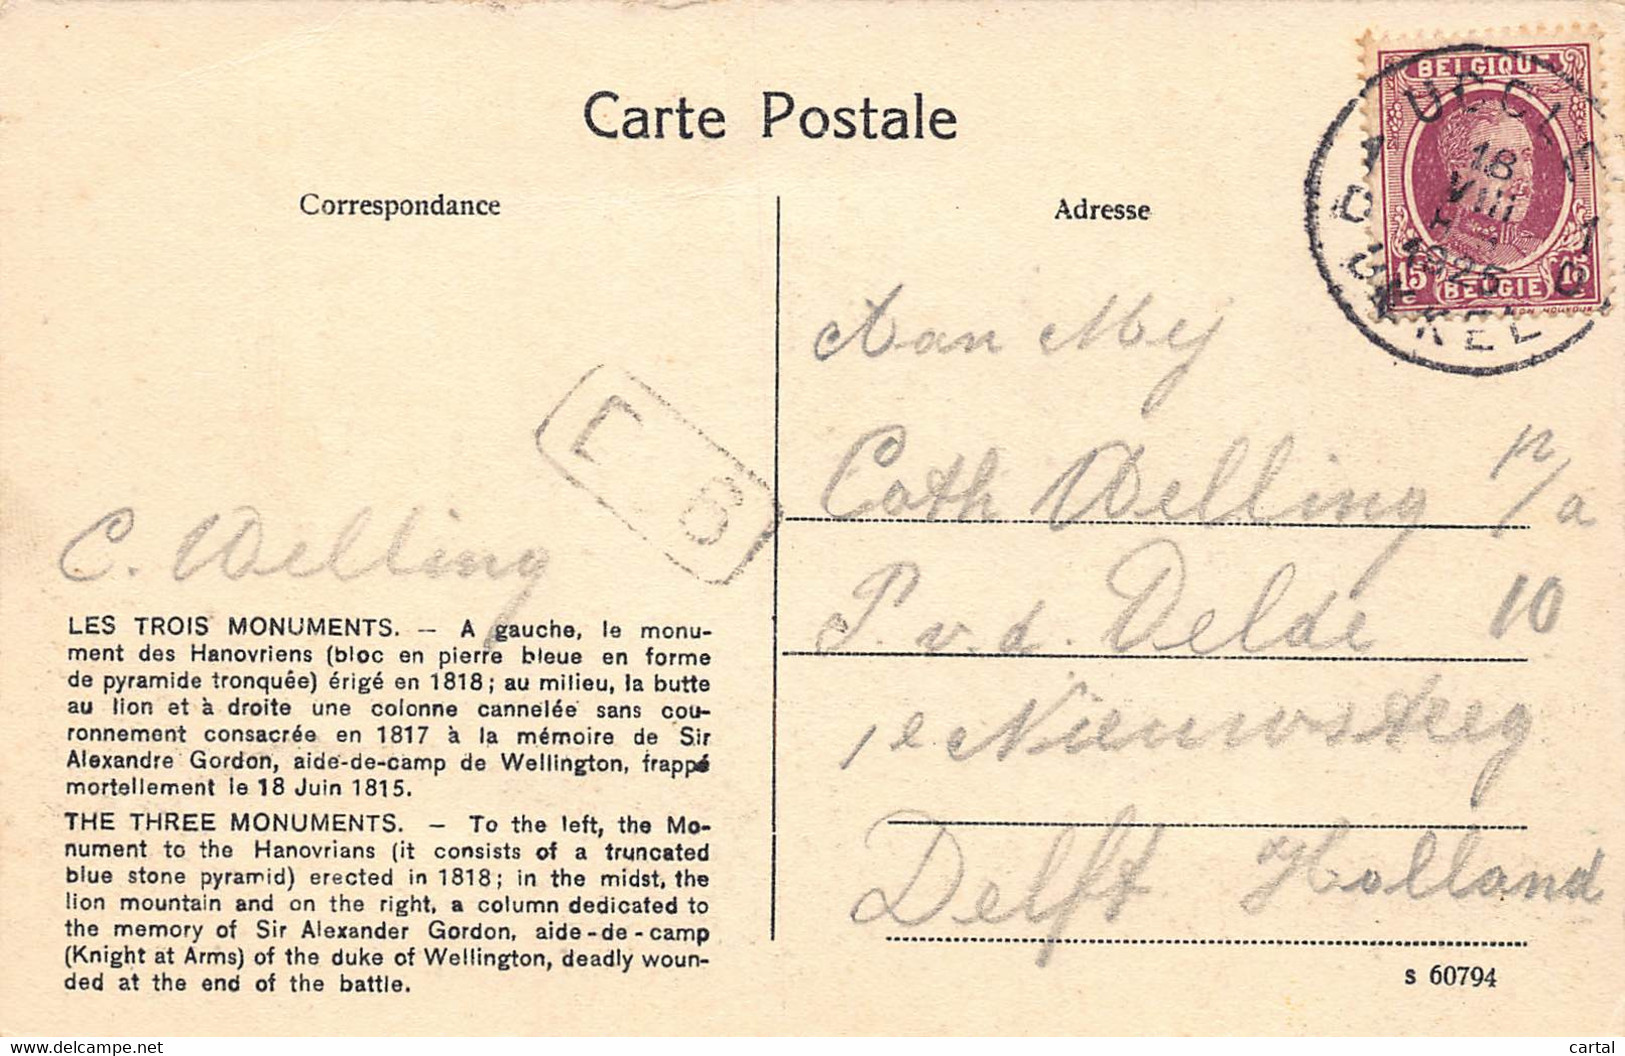 Carte Postale
Correspondance
Adresse
BELGIQUE
15 c
15 c
BELGIE
UCCLE 1
18
VIII
1925
1 D
1 D
UKKEL
E
6
Aan Mej
Cath Welling p/a
P. v. d. Velde 10
1e Nieuwsteeg
Delft Holland
C. Welling
LES TROIS MONUMENTS. — A gauche, le monu-
ment des Hanovriens (bloc en pierre bleue en forme
de pyramide tronquée) érigé en 1818; au milieu, la butte
au lion et à droite une colonne cannelée sans cou-
ronnement consacrée en 1817 à la mémoire de Sir
Alexandre Gordon, aide-de-camp de Wellington, frappé
mortellement le 18 Juin 1815.
THE THREE MONUMENTS. — To the left, the Mo-
nument to the Hanovrians (it consists of a truncated
blue stone pyramid) erected in 1818; in the midst, the
lion mountain and on the right, a column dedicated to
the memory of Sir Alexander Gordon, aide-de-camp
(Knight at Arms) of the duke of Wellington, deadly woun-
ded at the end of the battle.
s 60794
www.delcampe.net
cartal